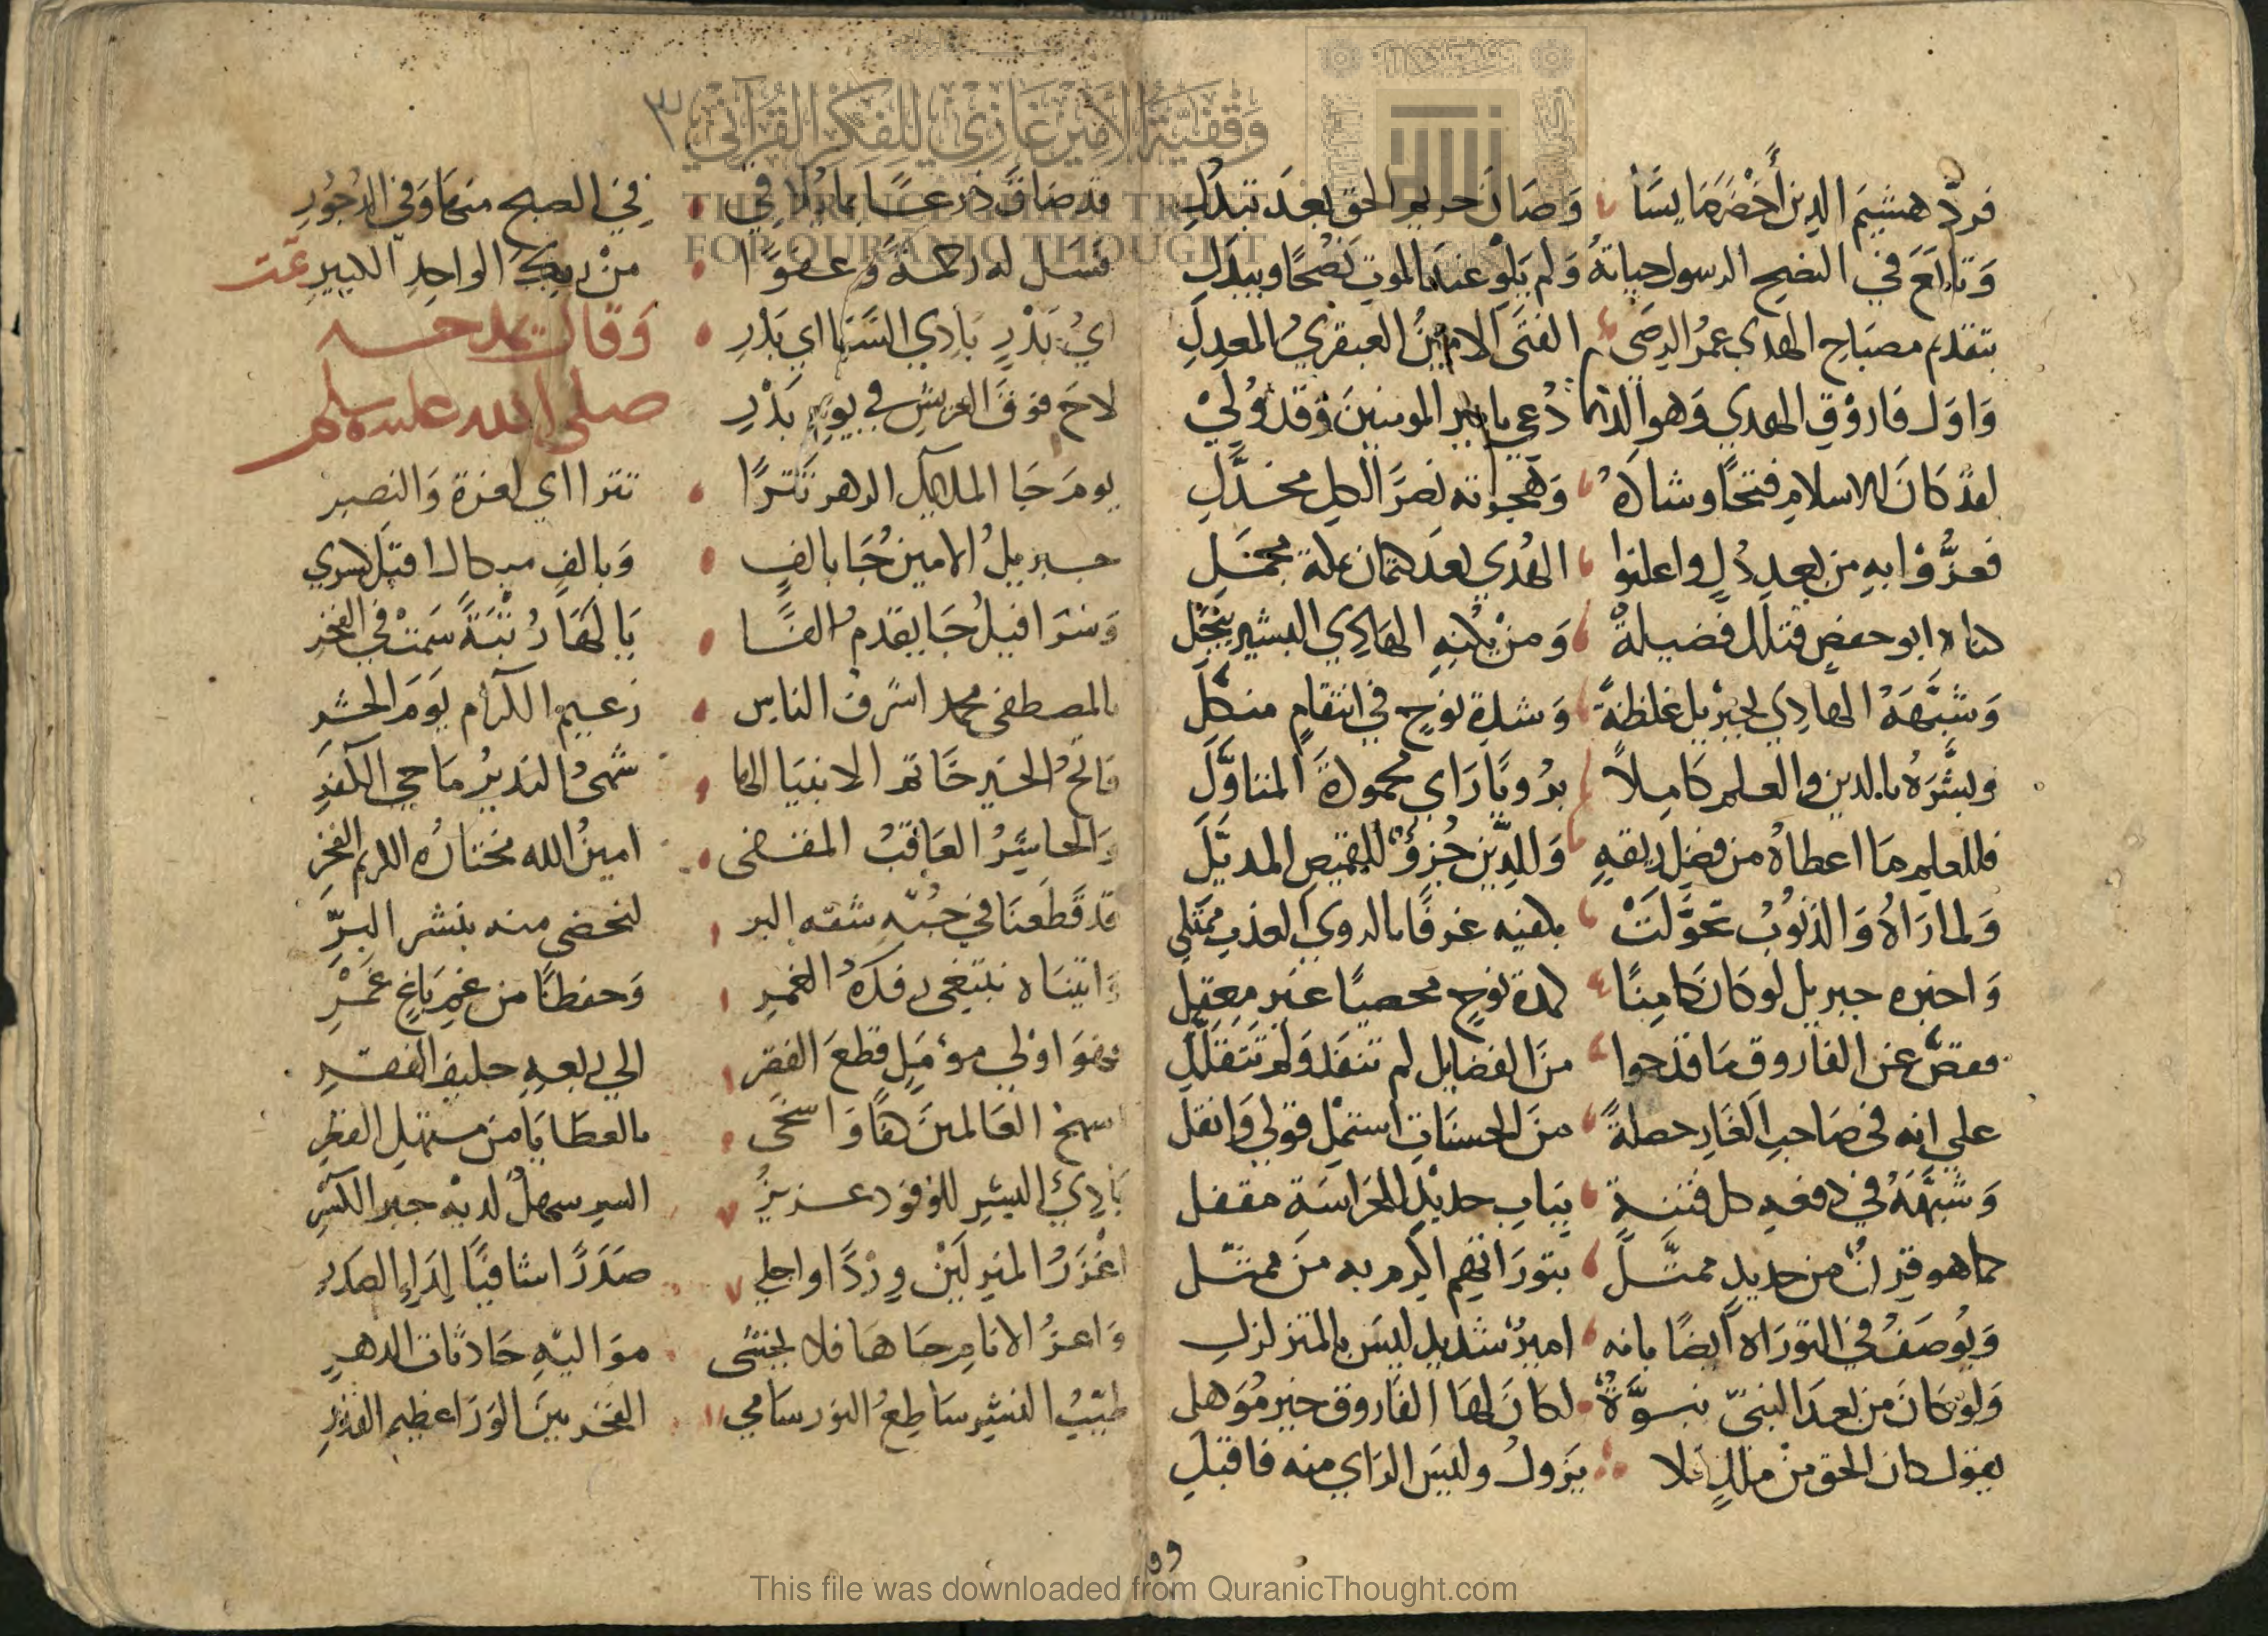 وقفية الأمير غازي للفكر القرآني
THE PRINCE GHAZI TRUST
FOR QURANIC THOUGHT
فردّ هشيم الدين أخضر مايسًا وَصَانَ حريم الحق بعدَ تبدلِ
وَتابَعَ في النصح الرسول حياتهُ وَلم يَلو عند الموت نُصْحًا ويبدلِ
بتقديم مصبَاح الهدي عمرُ الرضي الفتَى الامينُ العبقريُ المعدلِ
وَاوَل فاروْق الهدي وَهو الذي دُعي بامير المومنينَ وَقد وُليْ
لقد كانَ الاسلام فتحًا وشادهُ وَهجرته نصرَ الكل مخذَّلِ
فعزُّوْا بهِ من بعد ذلٍ واعلنوا الهُدي بعدَ كتمان بملة مجمَلِ
كناه ابو حفصٍ فتلك فضيلةْ وَمنْ يكنهِ الهَادِي البشير يبَجَّلْ
وَشبَّهَهُ الهادِي لجبْريل غلظةً وَشدة نوحٍ في انتقامٍ منكّلَ
وبشَّرَهُ بالدين والعلم كَاملاً برُويَا رَاي محمودة المتاوَّلَ
فللعلم مَا اعطاهُ من فضل ريقهِ وَللدِّين جُزؤٌ للقميص المديَّلَ
وَلما رَاهُ وَالذنُوبُ تحوَّلَتْ بكفيه غرفًا بالروي العذب ممتلي
وَاخبره جبريل لو كان كامنًا لمدة نوحٍ محصيًا غير معقِلَ
فقصَّ عن الفاروق مَا قد حوا منَ الفضايل لم تنفد وَلم تتَقَلّلِ
علي انه في صَاحبِ الغَار خصلةً منَ الحسنَاتِ استمل قولي وَانقل
وَشبَّهَهُ في دفعهِ كل فتنةٍ بِبَابِ حديْدٍ للحرَاسَةِ مقفل
كما هو قرنٌ من حديدٍ ممثّلً بتورَاتهم اكرم به منَ ممثّل
وَيُوصَفُ في التورَاه ايضًا بانه اميرٌ شديد ليسَ بالمتزلزلِ
وَلو كانَ من بعدَ النبيّ نبوَّةٌ لكان لهَا الفاروق خير مُوَهل
يقول كان الحق منْ ملكٍ فلا يَزولُ وليسَ الراي منه فاقبلِ
قد ضاق ذرعًا بما يُلاقي في الصبح منهَا وَفي الدُجُورِ
فسل له رحمةً وَعفوًا منْ ربكَ الواحدِ الكبيرِ تمت
وَقال يمدحه
صلي الله عليه وسلم
ايُ بَدْرٍ بَادِي السَنا اي بَدْرِ
لاحَ فوقَ العريش في يوم بَدْرِ
يومَ جَا الملايك الزهر تترًا تترا اي لعزة وَالنصر
جبريلُ الامين جَا بالفٍ وَبالفٍ ميكال اقبل يسري
وَسرَافيلُ جَا يقدم الفًا يَا لهَا رُتبَةً سَمتْ في الفخر
بالمصطفي محمد اشرف الناس زعيم الكرَام يَومَ الحشر
فاتحُ الخير خَاتم الانبيَا شمسُ النذيرُ مَاحي الكفر
وَالحاشرُ العَاقبُ المقفي امينُ الله مختارُه الكريم الفخر
قد قَطَعنَا في حُبّهِ شقه البر لنحضي منه بنشر البِرِّ
وَاتينَاه نبتغي رفدَهُ الغمر وَحفظًا من غير بَاغٍ غَمْرِ
فهوَ اوْلي مؤمَلٍ قطعَ القفر الي ربعهِ حليف الفقر
اسمحُ العَالمينَ كفًا وَاسخَى بالعطَايَا من مستهل القطر
بَادِيْ البشرِ للوفود عزيزُ السير سهلٌ لديْه جبر الكسْر
اغْزَرُ المنزلَيْن وِرْدًا واحلي صَدَرًا شافيًا لِدَاء الصدر
وَاعزُ الانَامِ جَاهَا فلا يخشى موَاليهِ حَادثات الدهرِ
طيّبُ النشر سَاطِعُ النور سَامي الفخر بينَ الورَا عظيم القدر
This file was downloaded from QuranicThought.com